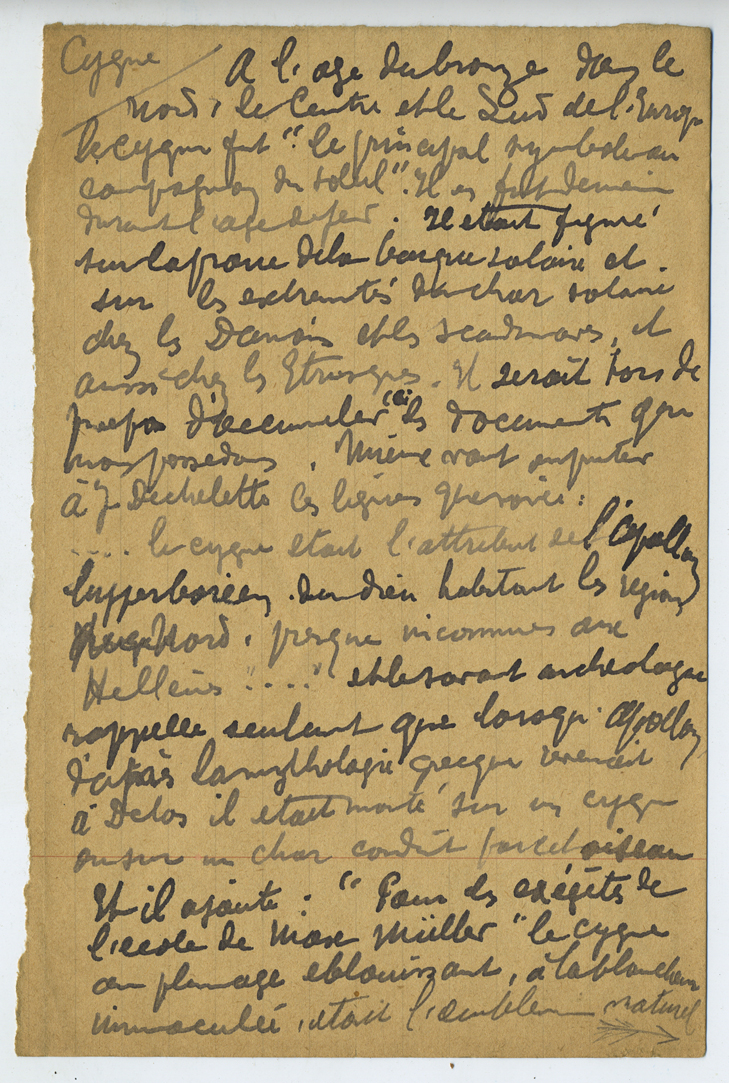 Cygne
A l'age du bronze dans le
nord, le Centre et le Sud de l'Europe
le cygne fut "le principal symbole ou
compagnon du soleil". Il en fut de meme
durant l'age de fer. Il etait figuré
sur la proue de la barque solaire et
sur les extremités du char solaire
chez les Danois et les scandinaves, et
aussi chez les Etrusques. Il serait hors de
propos d'accumuler ici les documents que
nous possedons. Mieux vaut emprunter
à J Dechelette ces lignes que voici :
.... le cygne etait l'attribut de l'Apollon
hyperboreen. du dieu habitant les regions
du Nord, presque inconnues aux
Hellènes "...." et le savant archeologue
rappelle seulement que lorsqu'Apollon
d'après la mythologie grecque revenait
à Delos il etait monté sur un cygne
ou sur un char conduit par cet oiseau
Et il ajoute : "Pour les exégètes de
l'ecole de Max Müller "le cygne
au plumage eblouissant, à la blancheur
immaculée, etait l'emblème naturel